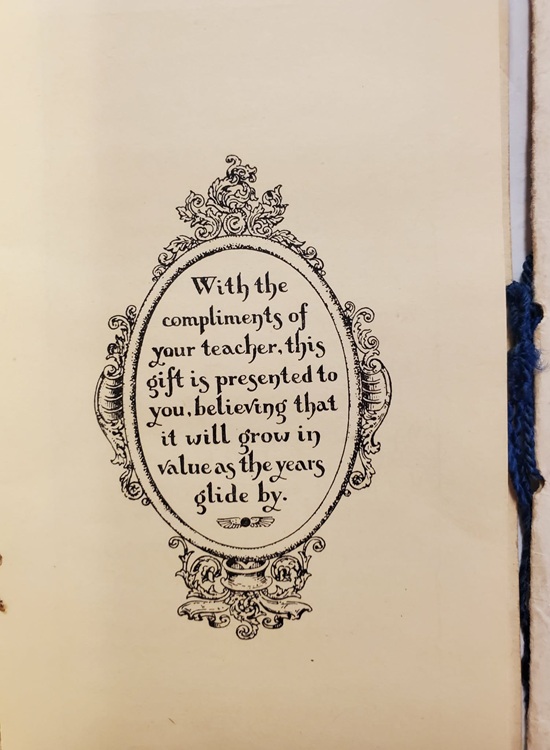 With the
compliments of
your teacher, this
gift is presented to
you, believing that
it will grow in
value as the years
glide by.